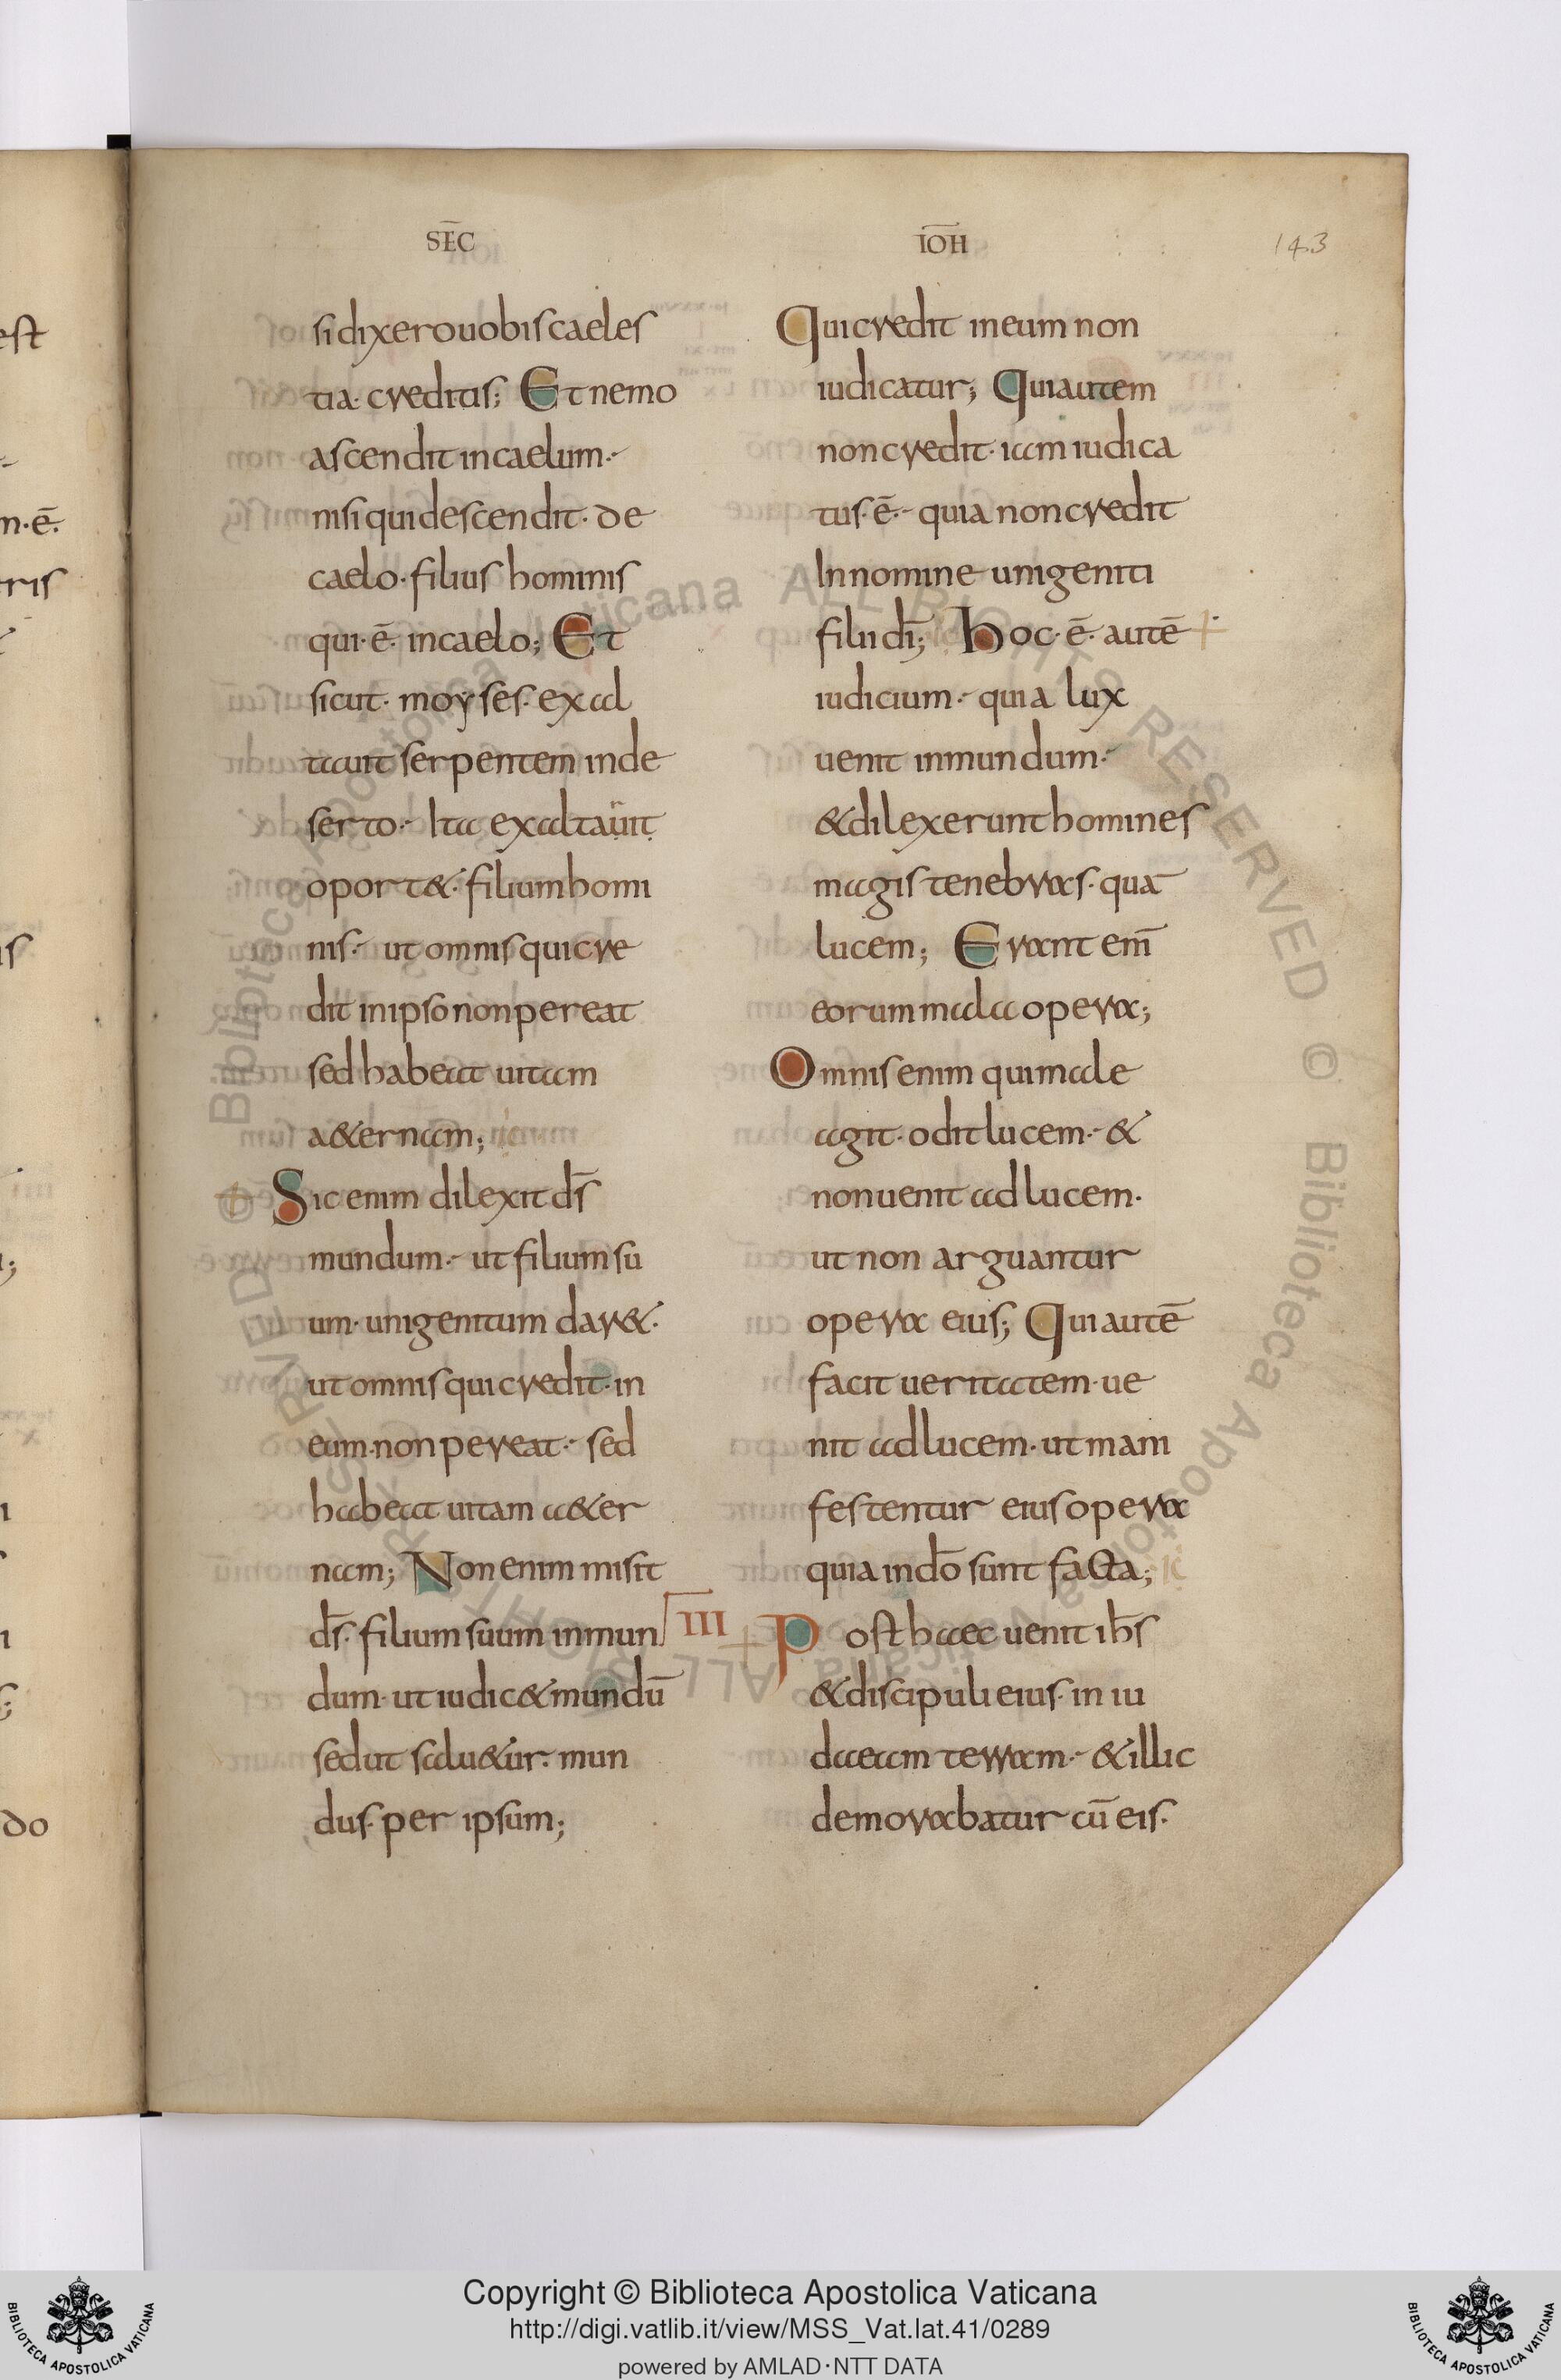 SEC̅
IOH̅
143
si dixero uobis caeles
tia· creditis; Et nemo
ascendit in caelum·-
nisi qui descendit· de
caelo· filius hominis
qui· ē· in caelo; Et
sicut· moyses· exal
tauit serpentem in de
serto·- Ita exaltauit
oport&· filium homi
nis·- ut omnis qui cre
dit in ipso non pereat
sed habeat uitam
a&ernam;
Sic enim dilexit dS̅
mundum·- ut filium su
um· unigenitum dar&·
ut omnis qui credit· in
eum· non pereat·- sed
habeat uitam a&er
nam; Non enim misit
ds̅· filium suum in mun
dum· ut iudic& mundū
sed ut salu&ur· mun
dus· per ipsum;
Qui credit in eum non
iudicatur; Qui autem
non credit· iam iudica
tus· ē·- quia non credit
In nomine unigeniti
filii di̅; Hoc· ē· autē
iudicium·- quia lux
uenit in mundum·-
& dilexerunt homines
magis tenebras· quā
lucem; Erant eni̅
eorum mala opera;
Omnis enim qui male
agit· odit lucem·- &
non uenit ad lucem·
ut non arguantur
opera eius; Qui autē
facit ueritatem· ue
nit ad lucem· ut mani
festentur eius opera
quia in do̅ sunt facta;
III Post haec uenit ihs̅
& discipuli eius· in iu
daeam terram·- & illic
demorabatur cū eis·
est
m·ē·
ris
is
do
Copyright © Biblioteca Apostolica Vaticana
http://digi.vatlib.it/view/MSS_Vat.lat.41/0289
powered by AMLAD·NTT DATA
BIBLIOTECA APOSTOLICA VATICANA
BIBLIOTECA APOSTOLICA VATICANA
Biblioteca Apostolica Vaticana ALL RIGHTS RESERVED © Biblioteca Apostolica Vaticana ALL RIGHTS RESERVED ©